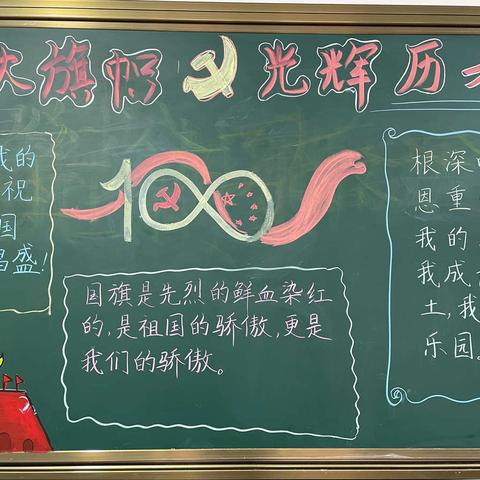 旗帜 光辉历
我的
祝
国
昌盛!
100
国旗是先烈的鲜血染红
的,是祖国的骄傲,更是
我们的骄傲。
根深
恩重
我的
我成
土,我
乐园。